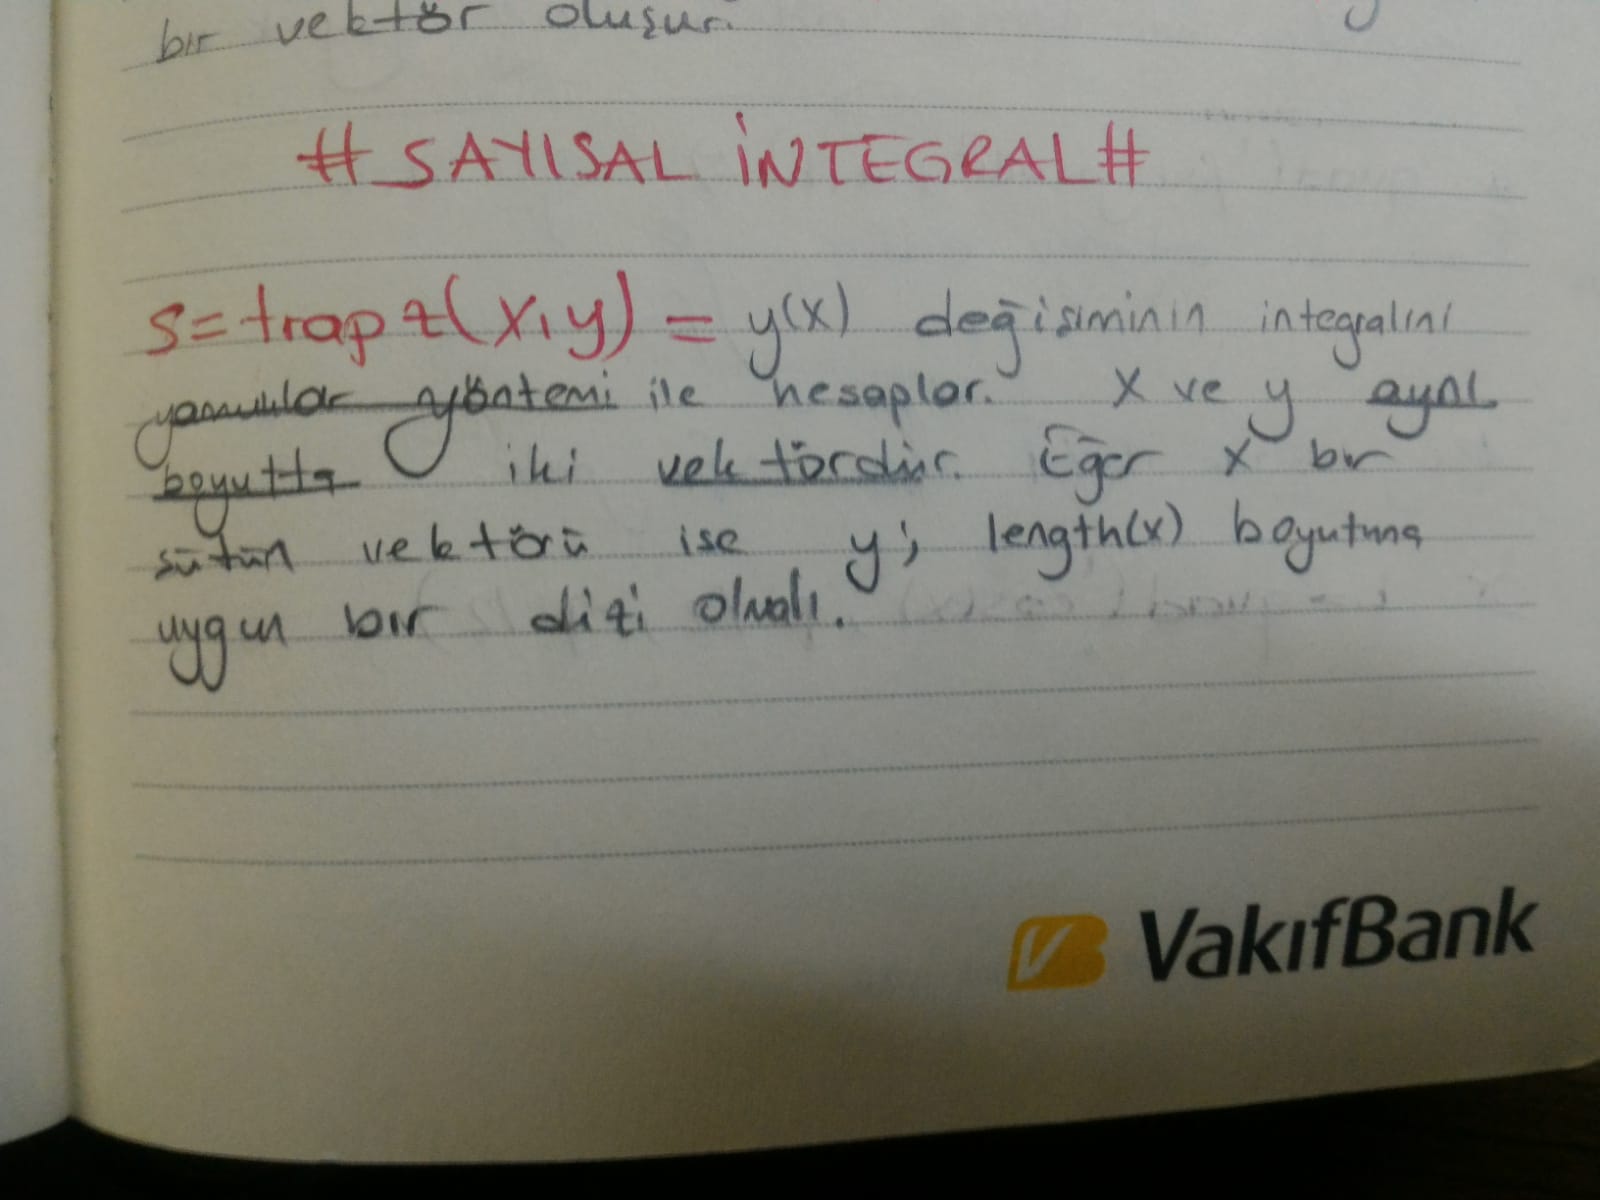 bir vektör oluşur.
# SAYISAL İNTEGRAL #
s = trapz(x,y) = y(x) değişiminin integralini
yamuklar yöntemi ile hesaplar. x ve y aynı
boyutta iki vektördür. Eğer x bir
sütun vektörü ise y; length(x) boyutuna
uygun bir dizi olmalı.
VakıfBank